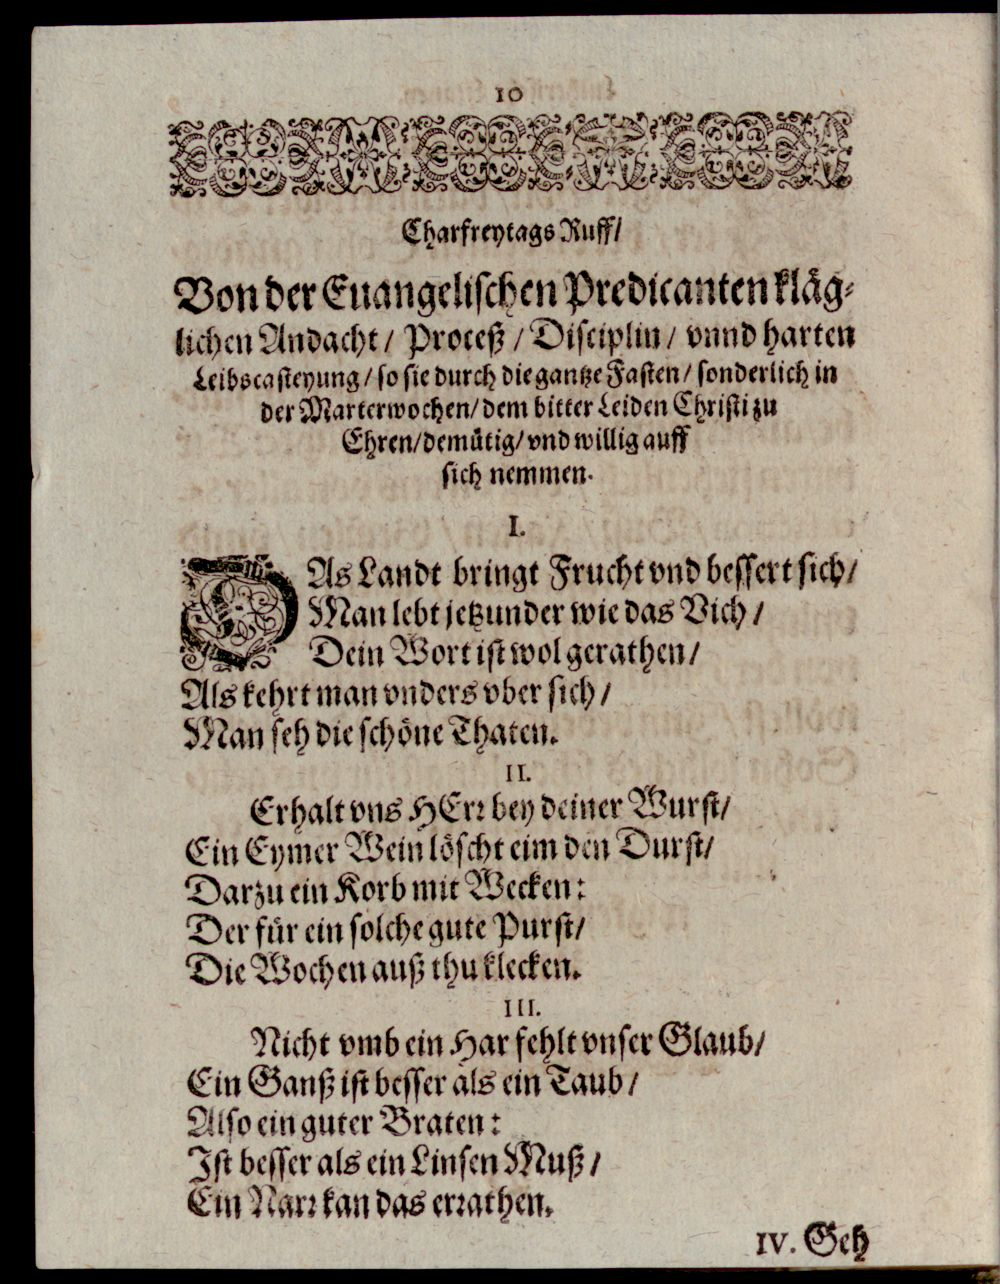 10
Charfreytags Ruff/
Von der Euangelischen Predicanten kläg-
lichen Andacht / Proceß / Disciplin / vnnd harten
Leibscasteyung / so sie durch die gantze Fasten / sonderlich in
der Marterwochen / dem bitter Leiden Christi zu
Ehren / demütig / vnd willig auff
sich nemmen.
I.
DAs Landt bringt Frucht vnd bessert sich /
Man lebt jetzunder wie das Vich /
Dein Wort ist wol gerathen /
Als kehrt man vnders vber sich /
Man seh die schöne Thaten.
II.
Erhalt vns HErr bey deiner Wurst /
Ein Eymer Wein löscht eim den Durst /
Darzu ein Korb mit Wecken:
Der für ein solche gute Purst /
Die Wochen auß thu klecken.
III.
Nicht vmb ein Har fehlt vnser Glaub /
Ein Ganß ist besser als ein Taub /
Also ein guter Braten:
Ist besser als ein Linsen Muß /
Ein Narr kan das errathen.
IV. Geh